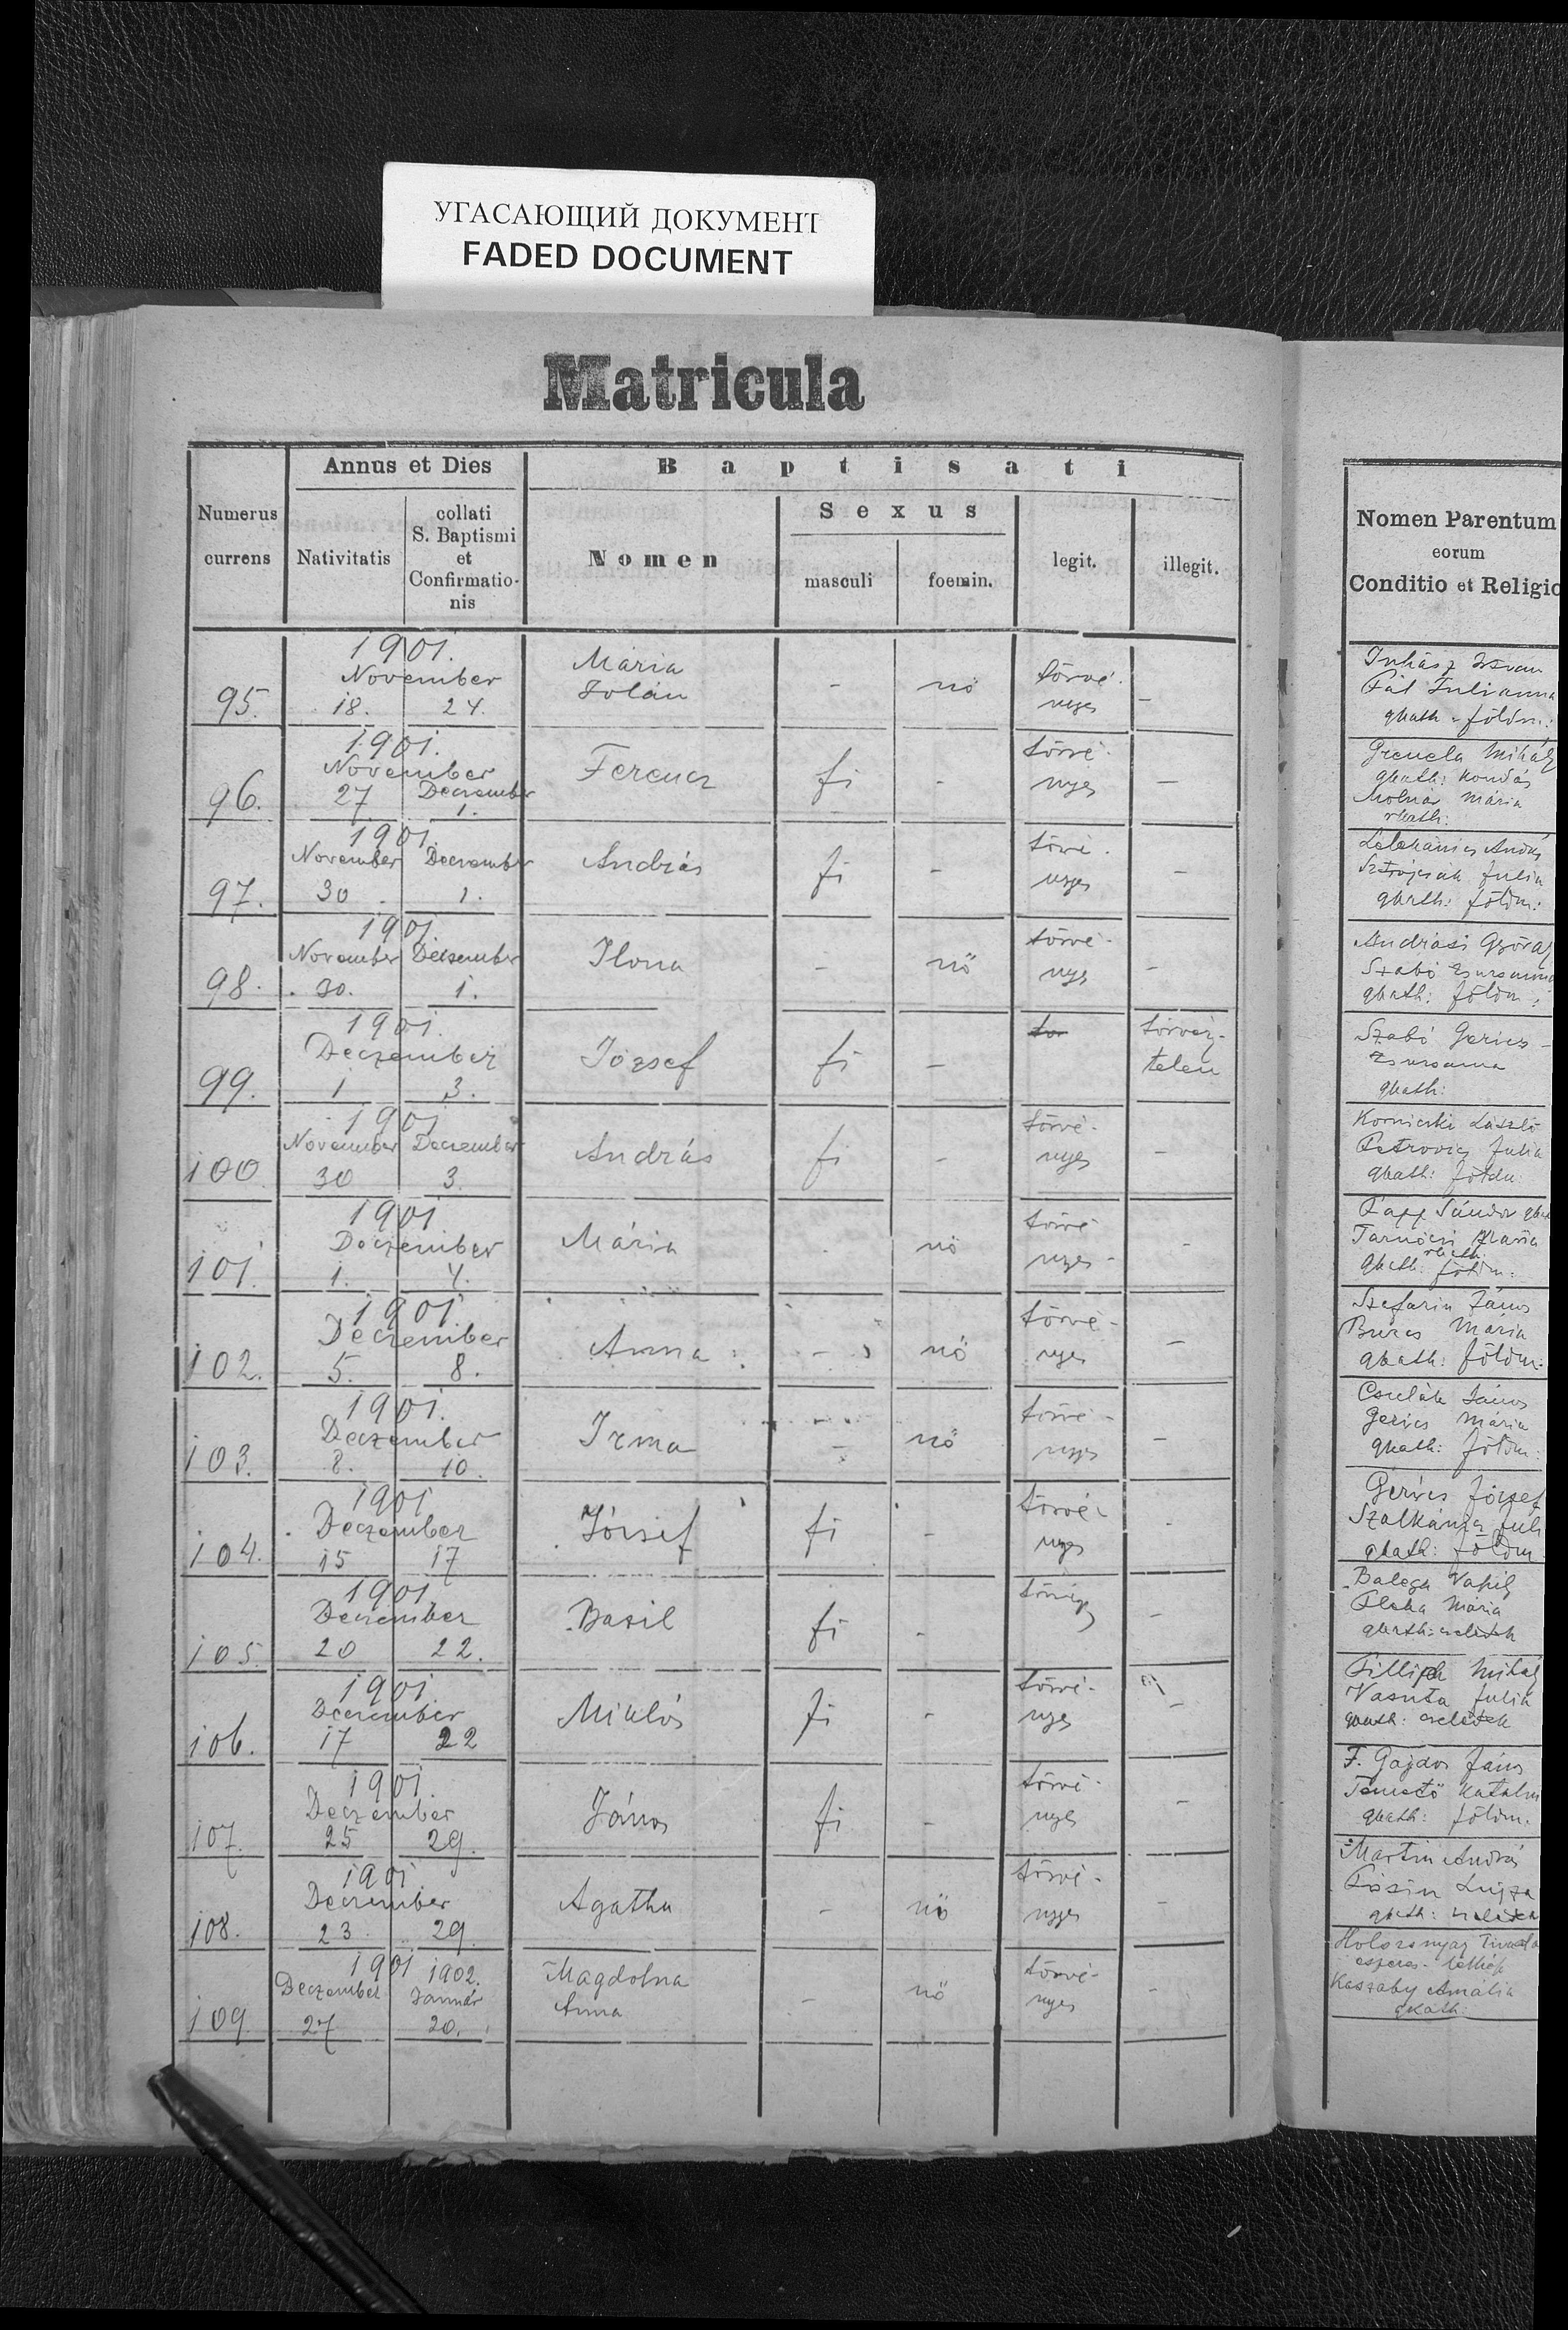 УГАСАЮЩИЙ ДОКУМЕНТ
FADED DOCUMENT
Matricula
Numerus currens
Annus et Dies
Nativitatis
collati
S. Baptismi
et
Confirmatio-
nis
Baptisati
Nomen
Sexus
masculi
foemin.
legit.
illegit.
Nomen Parentum
eorum
Conditio et Religio
95. 1901. November 18. 24. Mária Jolán - nő törvé-nyes -
Juhász István
Pál Julianna
gkath. földm:
96. 1901. November 27 Deczember 1. Ferencz fi - törvé-nyes -
Mihály
gkath: kondás
Molnár Mária
rkath:
97. 1901. November 30. Deczember 1. András fi - törvé-nyes -
András
Julia
gkath: földm:
98. 1901. November 30. Deczember 1. Ilona - nő törvé-nyes -
Andrási György
Szabó Zsuzsanna
gkath: földm:
99. 1901. Deczember 1 3. József fi - tör törvény-telen
Szabó Gerics-
Zsuzsanna
gkath:
100. 1901 November 30 Deczember 3. András fi - törvé-nyes -
László
Petrovics Julia
gkath: földm:
101. 1901 Deczember 1. 4. Mária nő törvé-nyes -
Papp Sándor
Tarnóczi Mária
rkath.
gkath. földm:
102. 1901 Deczember 5. 8. Anna - nő törvé-nyes -
János
Mária
gkath: földm:
103. 1901. Deczember 8. 10. Irma - nő törvé-nyes -
János
Gerics Mária
gkath: földm:
104. 1901 Deczember 15 17 József fi - törvé-nyes -
Gerics József
gkath: földm
105. 1901 Deczember 20 22. Basil fi - -
Balega
Mária
gkath: cselédek
106. 1901. Deczember 17 22 Miklós fi - törvé-nyes -
Mihály
Vasuta Julia
gkath: cselédek
107. 1901. Deczember 25 29. János fi - törvé-nyes -
F. Gajdos János
Temető Katalin
gkath: földm.
108. 1901 Deczember 23 29. Agatha - nő törvé-nyes -
Martin András
Lujza
gkath:
109 1901 Deczember 27 1902. Január 20. Magdolna Anna - nő törvé-nyes -
esperes-
Amália
gkath.